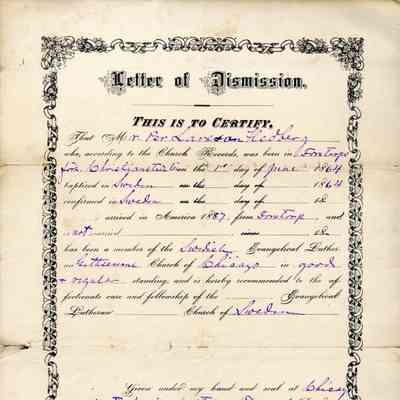 Letter of Dismission.
THIS IS TO CERTIFY,
That Mr Per Larsson Hedberg
who, according to the Church Records, was born in
on the 1st day of June 1864
baptized in Sweden on the day of 1864
confirmed in Sweden on the day of 18
arrived in America 1887, from and
not married since 18
has been a member of the Swedish Evangelical Luther-
an Gethsemane Church of Chicago in good
& regular standing, and is hereby recommended to the af-
fectionate care and fellowship of the Evangelical
Lutheran Church of Sweden
Given under my hand and seal at Chicago